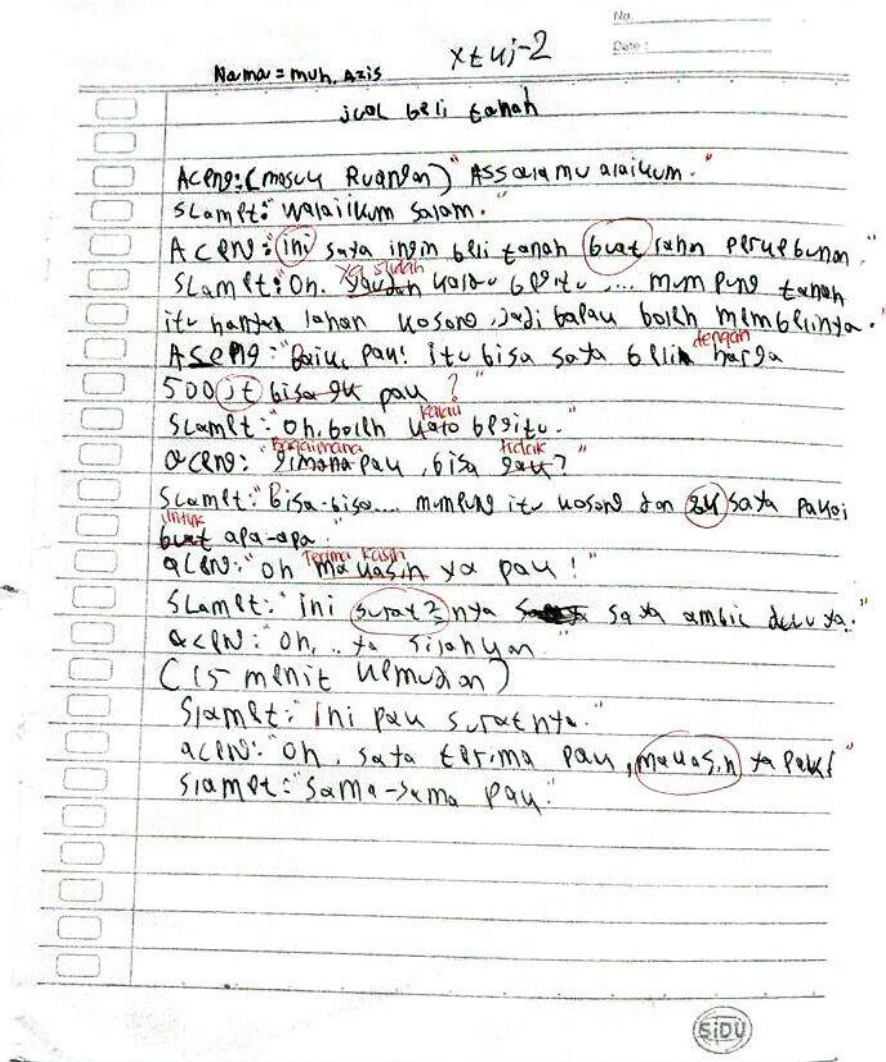 No.
Date :
X t uj-2
Nama = muh. Azis
jual beli tanah
Aceng: (masuk Ruangan) "Assalamu alaikum."
Slamet: "Walaiikum salam."
Aceng: "ini saya ingin beli tanah buat lahan perkebunan."
ya sudah
Slamet: "Oh. yaudah kalau begitu .... mumpung tanah
itu hanya lahan kosong, jadi bapak boleh membelinya."
dengan
Aseng: "Baik, pak! itu bisa saya beli harga
500 jt bisa gk pak ?"
kalau
Slamet: "oh. boleh kalo begitu."
Bagaimana tidak
aceng: "gimana pak, bisa gak?"
Slamet: "Bisa-bisa.... mumpung itu kosong dan gk saya pakai
untuk
buat apa-apa."
Terima kasih
aceng: "oh makasih ya pak !"
Slamet: "ini surat2nya saya ambil dulu ya."
aceng: "oh, .. ya silahkan"
(15 menit kemudian)
Slamet: "ini pak suratnya."
aceng: "oh. saya terima pak, makasih ya pak!"
Slamet: "sama-sama pak."
SiDU